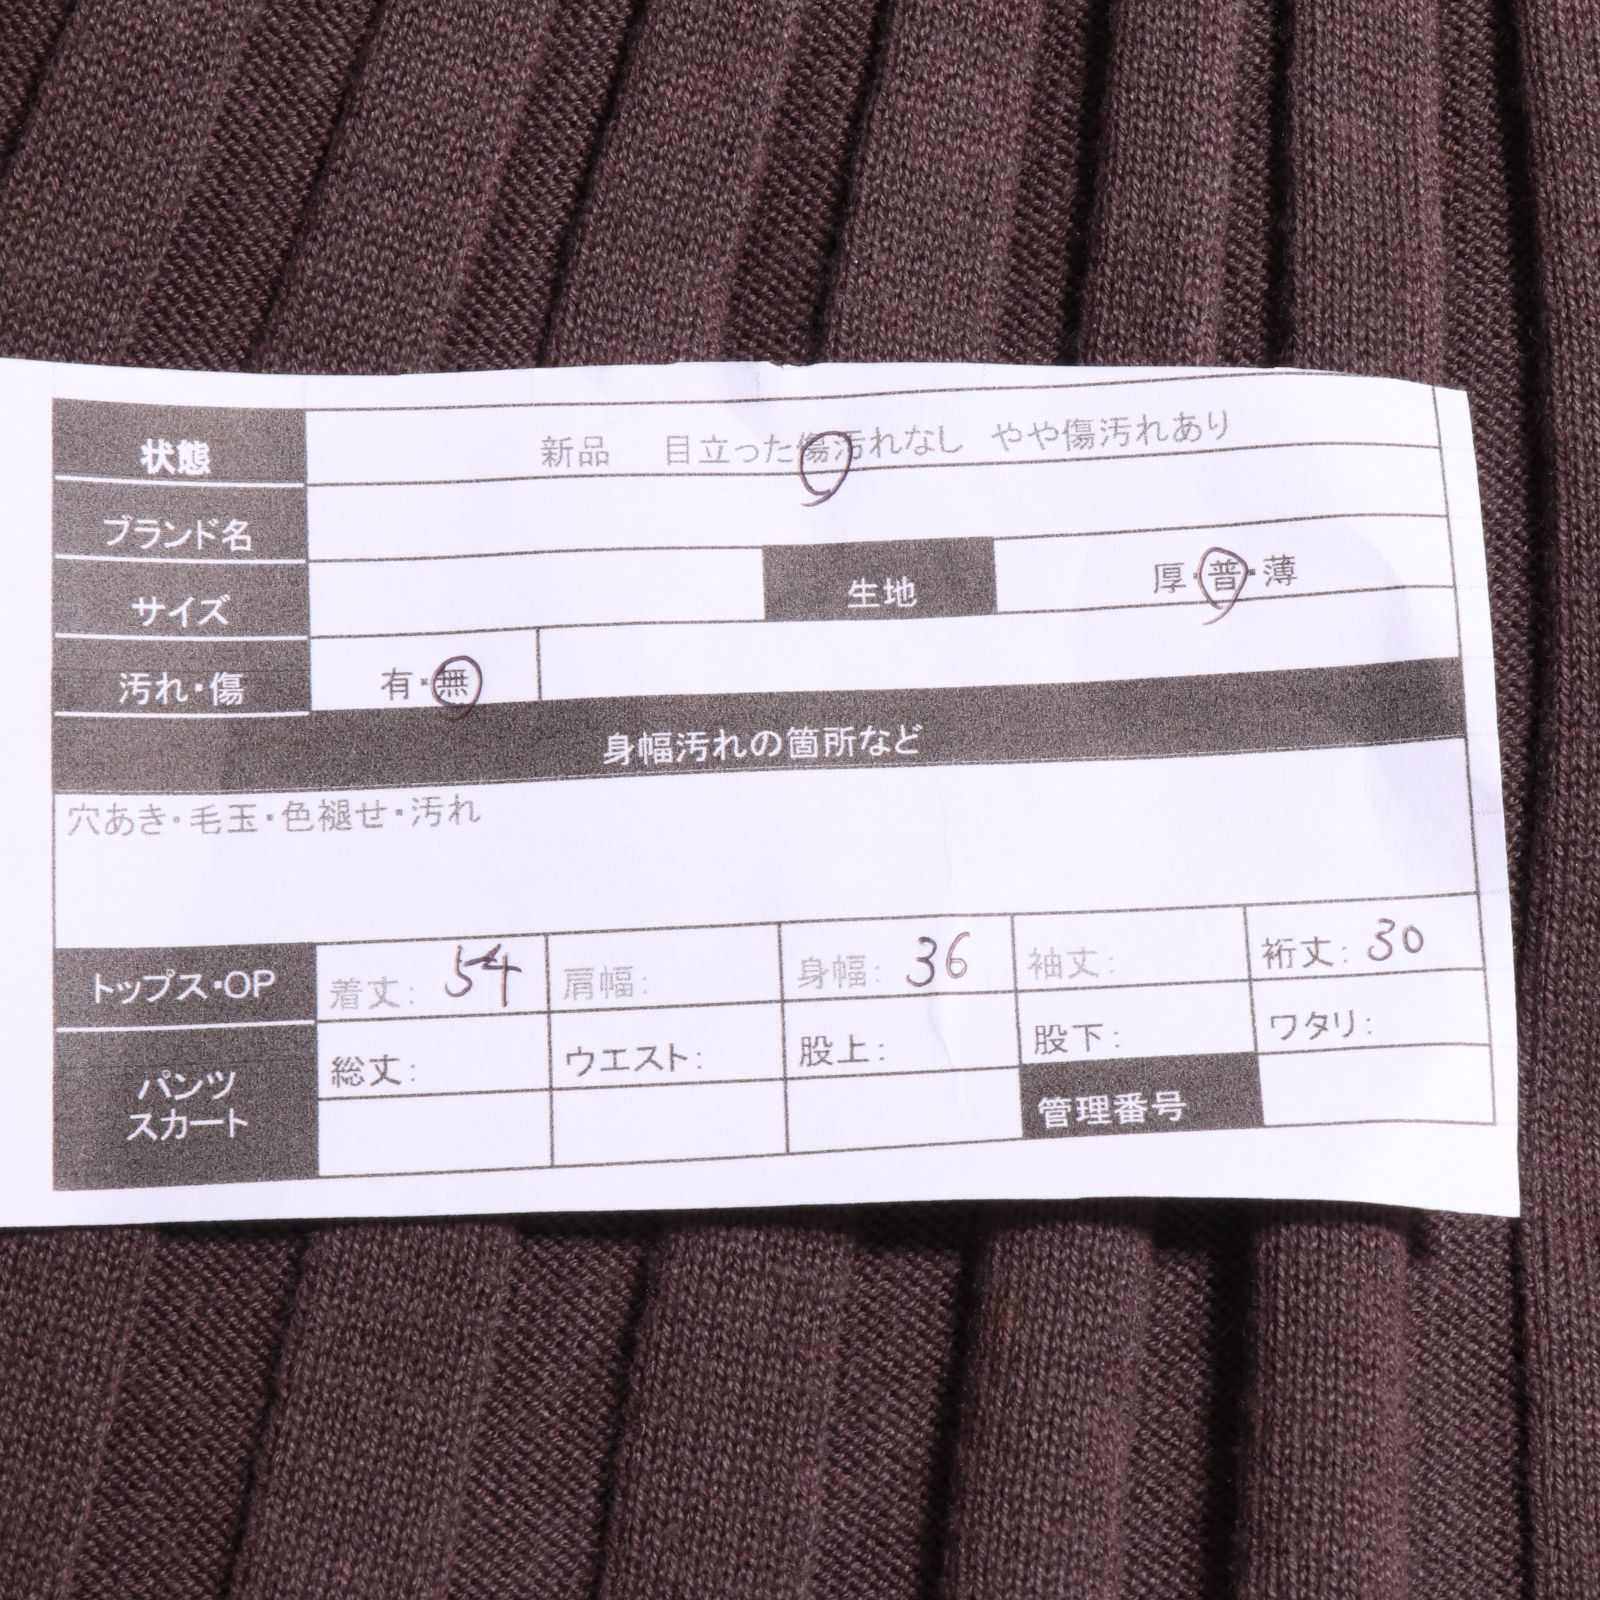 状態 新品 目立った傷汚れなし やや傷汚れあり
ブランド名
サイズ 生地 厚・普・薄
汚れ・傷 有・無
身幅汚れの箇所など
穴あき・毛玉・色褪せ・汚れ
トップス・OP 着丈: 54 肩幅: 身幅: 36 袖丈: 裄丈: 30
パンツ 総丈: ウエスト: 股上: 股下: ワタリ:
スカート 管理番号